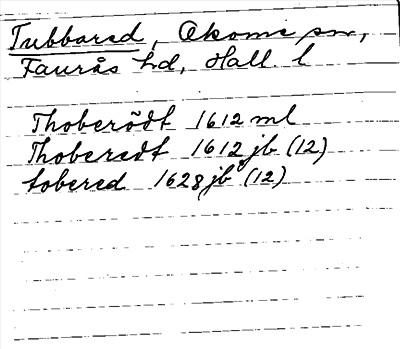 Tubbared, Okome sn,
Faurås hd, Hall. l
Thoberödt 1612 ml
Thoberedt 1612 jb (12)
tobered 1628 jb (12)